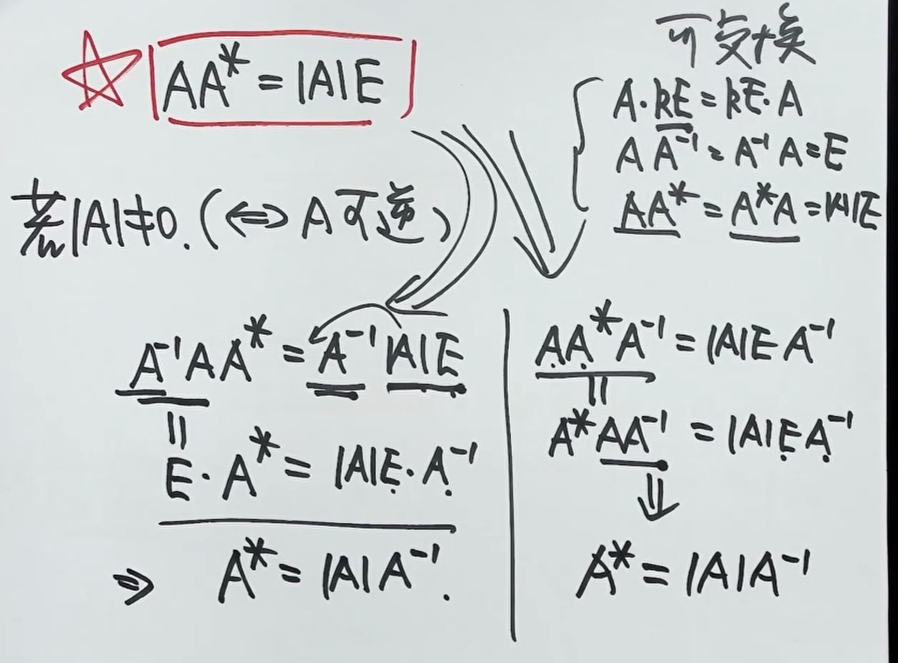 AA* = |A|E
可交换
A·kE = kE·A
AA⁻¹ = A⁻¹A = E
AA* = A*A = |A|E
若|A|≠0.(⇔ A可逆)
A⁻¹AA* = A⁻¹|A|E
=
E·A* = |A|E·A⁻¹
⇒ A* = |A|A⁻¹.
AA*A⁻¹ = |A|EA⁻¹
=
A*AA⁻¹ = |A|EA⁻¹
⇓
A* = |A|A⁻¹